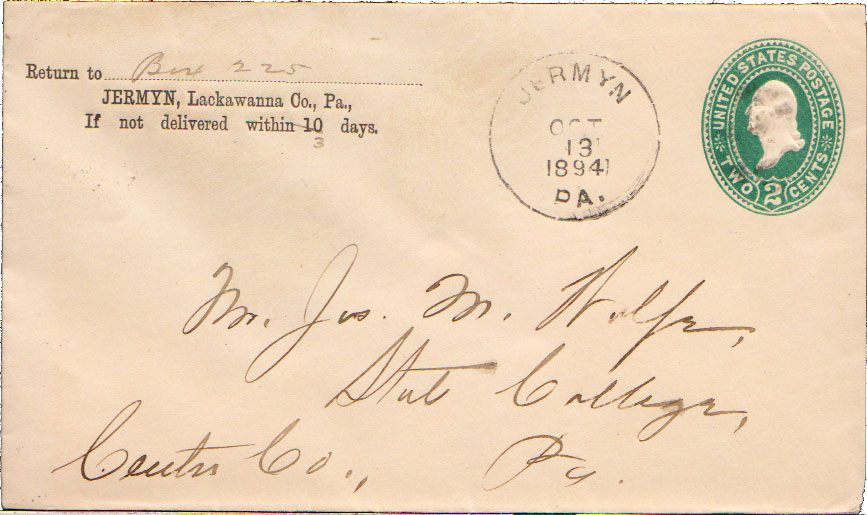 Return to Box 225
JERMYN, Lackawanna Co., Pa.,
If not delivered within 10 days.
3
JERMYN
OCT
13
1894
PA.
UNITED STATES POSTAGE
TWO 2 CENTS
Mr. Jos. M. Wolfe,
State College,
Centre Co., Pa.